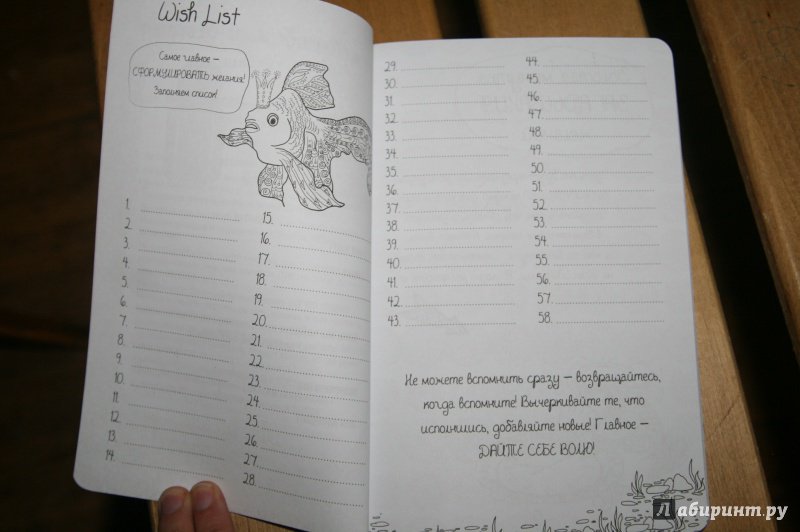 Wish List
Самое главное –
СФОРМУЛИРОВАТЬ желания!
Заполняем список!
1.
2.
3.
4.
5.
6.
7.
8.
9.
10.
11.
12.
13.
14.
15.
16.
17.
18.
19.
20.
21.
22.
23.
24.
25.
26.
27.
28.
29.
30.
31.
32.
33.
34.
35.
36.
37.
38.
39.
40.
41.
42.
43.
44.
45.
46.
47.
48.
49.
50.
51.
52.
53.
54.
55.
56.
57.
58.
Не можете вспомнить сразу – возвращайтесь,
когда вспомните! Вычеркивайте те, что
исполнились, добавляйте новые! Главное –
ДАЙТЕ СЕБЕ ВОЛЮ!
Лабиринт.ру